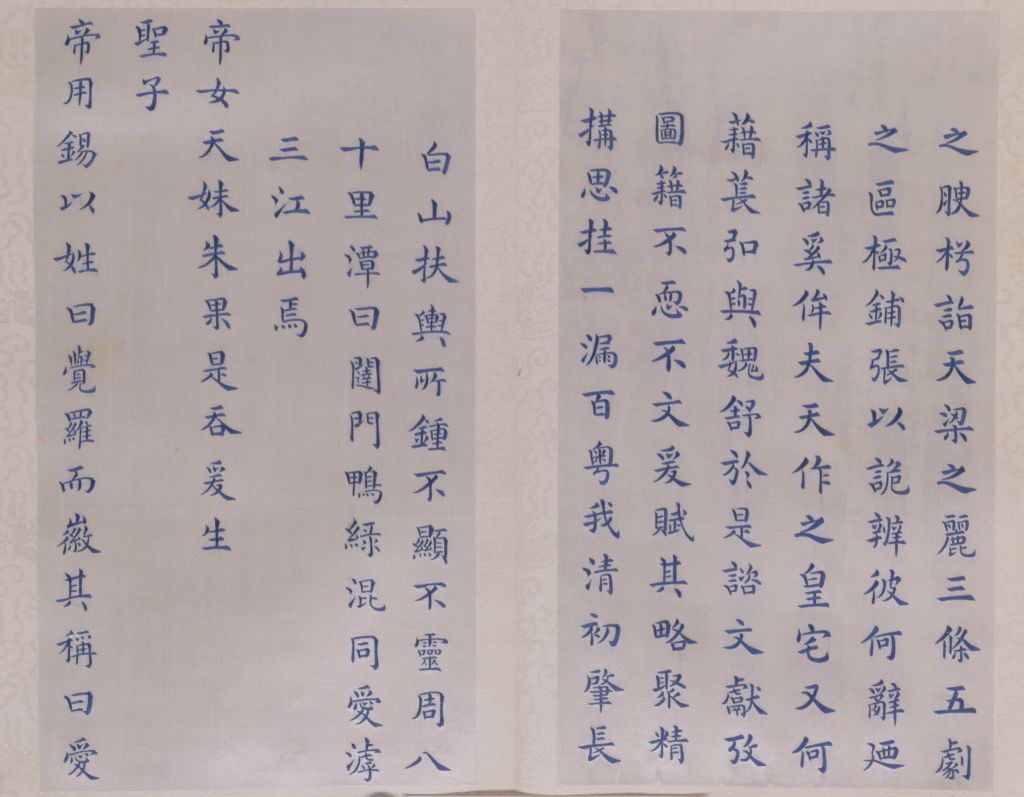 之腴枍詣天梁之麗三條五劇
之區極鋪張以詭辨彼何辭廼
稱諸奚侔夫天作之皇宅又何
藉萇弘與魏舒於是諮文獻攷
圖籍不恧不文爰賦其略聚精
搆思挂一漏百粵我清初肇長
白山扶輿所鍾不顯不靈周八
十里潭曰闥門鴨綠混同愛滹
三江出焉
帝女天妹朱果是吞爰生
聖子
帝用錫以姓曰覺羅而徽其稱曰愛